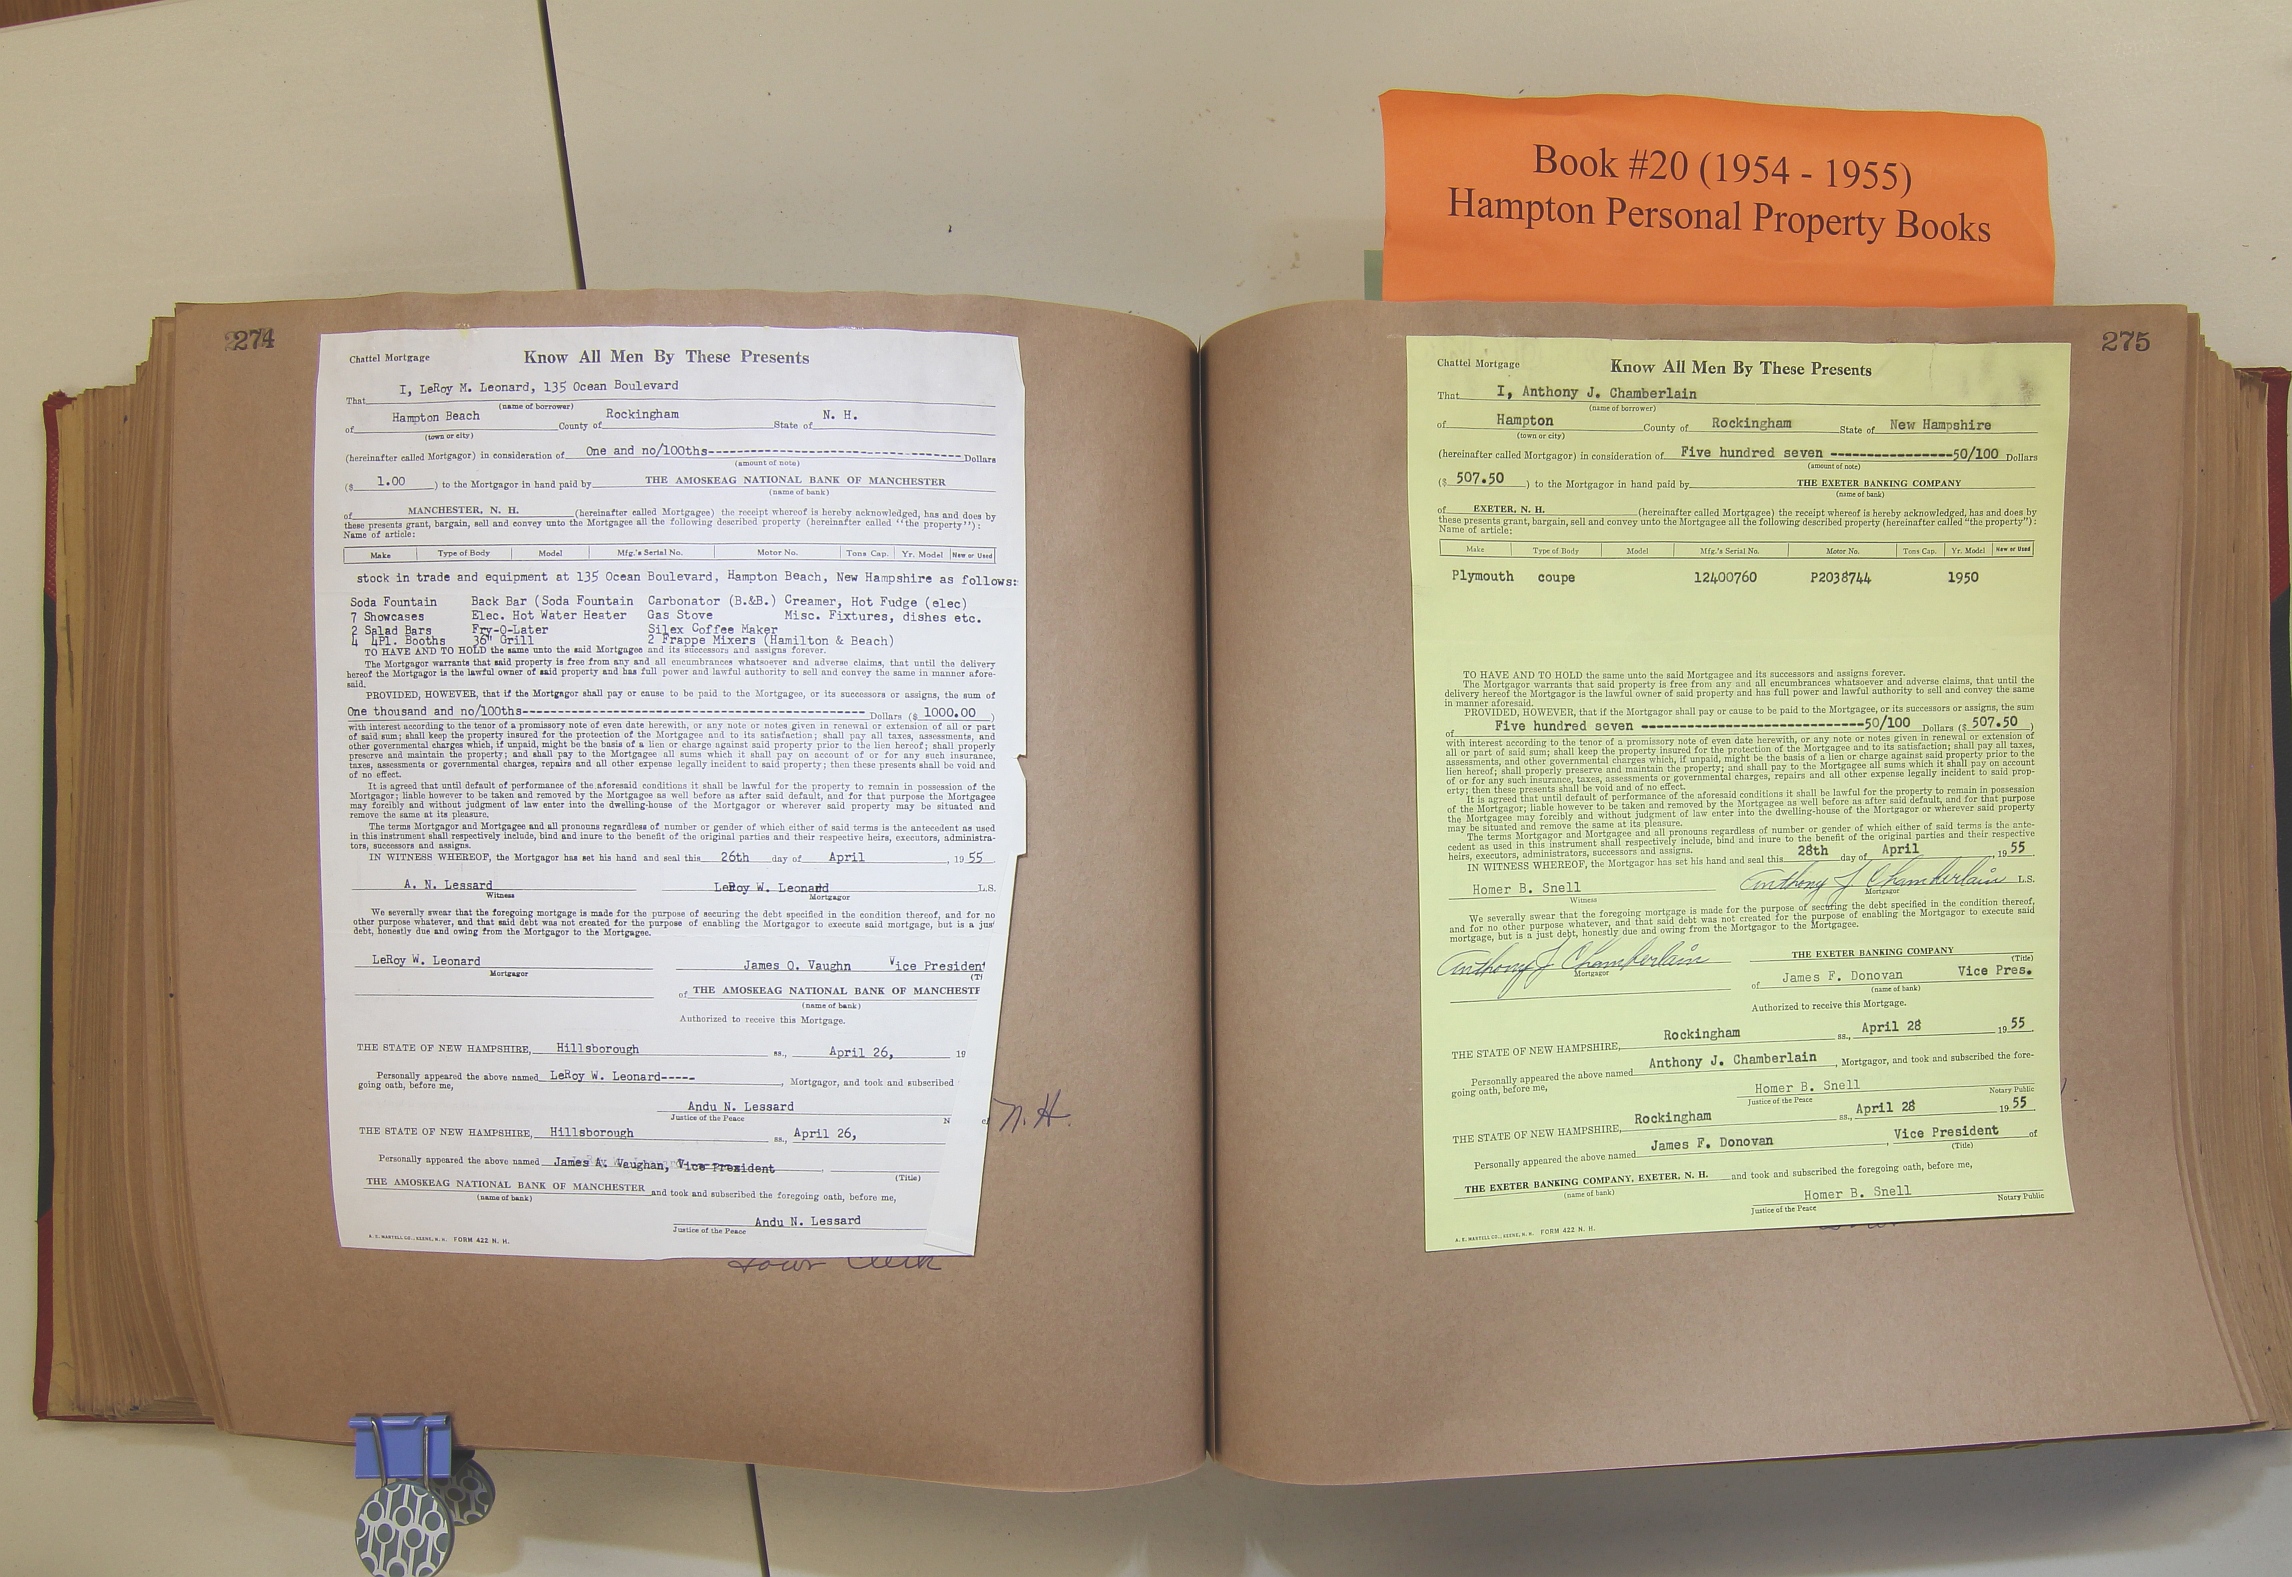 Book #20 (1954 - 1955)
Hampton Personal Property Books
274
Chattel Mortgage
Know All Men By These Presents
That I, LeRoy M. Leonard, 135 Ocean Boulevard
(name of borrower)
of Hampton Beach County of Rockingham State of N. H.
(town or city)
(hereinafter called Mortgagor) in consideration of One and no/100ths------------------------------------ Dollars
(amount of note)
($ 1.00 ) to the Mortgagor in hand paid by THE AMOSKEAG NATIONAL BANK OF MANCHESTER
(name of bank)
of MANCHESTER, N. H. (hereinafter called Mortgagee) the receipt whereof is hereby acknowledged, has and does by
these presents grant, bargain, sell and convey unto the Mortgagee all the following described property (hereinafter called "the property"):
Name of article:
Make Type of Body Model Mfg.'s Serial No. Motor No. Tons Cap. Yr. Model New or Used
stock in trade and equipment at 135 Ocean Boulevard, Hampton Beach, New Hampshire as follows:
Soda Fountain Back Bar (Soda Fountain Carbonator (B.&B.) Creamer, Hot Fudge (elec)
7 Showcases Elec. Hot Water Heater Gas Stove Misc. Fixtures, dishes etc.
2 Salad Bars Fry-O-Later Silex Coffee Maker
4 4Pl. Booths 36" Grill 2 Frappe Mixers (Hamilton & Beach)
TO HAVE AND TO HOLD the same unto the said Mortgagee and its successors and assigns forever.
The Mortgagor warrants that said property is free from any and all encumbrances whatsoever and adverse claims, that until the delivery
hereof the Mortgagor is the lawful owner of said property and has full power and lawful authority to sell and convey the same in manner afore-
said.
PROVIDED, HOWEVER, that if the Mortgagor shall pay or cause to be paid to the Mortgagee, or its successors or assigns, the sum of
One thousand and no/100ths------------------------------------------------ Dollars ($ 1000.00 )
with interest according to the tenor of a promissory note of even date herewith, or any note or notes given in renewal or extension of all or part
of said sum; shall keep the property insured for the protection of the Mortgagee and to its satisfaction; shall pay all taxes, assessments, and
other governmental charges which, if unpaid, might be the basis of a lien or charge against said property prior to the lien hereof; shall properly
preserve and maintain the property; and shall pay to the Mortgagee all sums which it shall pay on account of or for any such insurance,
taxes, assessments or governmental charges, repairs and all other expense legally incident to said property; then these presents shall be void and
of no effect.
It is agreed that until default of performance of the aforesaid conditions it shall be lawful for the property to remain in possession of the
Mortgagor; liable however to be taken and removed by the Mortgagee as well before as after said default, and for that purpose the Mortgagee
may forcibly and without judgment of law enter into the dwelling-house of the Mortgagor or wherever said property may be situated and
remove the same at its pleasure.
The terms Mortgagor and Mortgagee and all pronouns regardless of number or gender of which either of said terms is the antecedent as used
in this instrument shall respectively include, bind and inure to the benefit of the original parties and their respective heirs, executors, administra-
tors, successors and assigns.
IN WITNESS WHEREOF, the Mortgagor has set his hand and seal this 26th day of April , 19 55.
A. N. Lessard LeRoy W. Leonard L.S.
Witness Mortgagor
We severally swear that the foregoing mortgage is made for the purpose of securing the debt specified in the condition thereof, and for no
other purpose whatever, and that said debt was not created for the purpose of enabling the Mortgagor to execute said mortgage, but is a jus
debt, honestly due and owing from the Mortgagor to the Mortgagee.
LeRoy W. Leonard James O. Vaughn Vice President
Mortgagor
of THE AMOSKEAG NATIONAL BANK OF MANCHESTE
(name of bank)
Authorized to receive this Mortgage.
THE STATE OF NEW HAMPSHIRE, Hillsborough ss., April 26, 19
Personally appeared the above named LeRoy W. Leonard----- , Mortgagor, and took and subscribed
going oath, before me,
Andu N. Lessard
Justice of the Peace N
N. H.
THE STATE OF NEW HAMPSHIRE, Hillsborough ss., April 26,
Personally appeared the above named James A. Vaughan, Vice President ,
(Title)
THE AMOSKEAG NATIONAL BANK OF MANCHESTER and took and subscribed the foregoing oath, before me,
(name of bank)
Andu N. Lessard
Justice of the Peace
A. E. MARTELL CO., KEENE, N. H. FORM 422 N. H.
Town Clerk
275
Chattel Mortgage
Know All Men By These Presents
That I, Anthony J. Chamberlain
(name of borrower)
of Hampton County of Rockingham State of New Hampshire
(town or city)
(hereinafter called Mortgagor) in consideration of Five hundred seven -----------------50/100 Dollars
(amount of note)
($ 507.50 ) to the Mortgagor in hand paid by THE EXETER BANKING COMPANY
(name of bank)
of EXETER, N. H. (hereinafter called Mortgagee) the receipt whereof is hereby acknowledged, has and does by
these presents grant, bargain, sell and convey unto the Mortgagee all the following described property (hereinafter called "the property"):
Name of article:
Make Type of Body Model Mfg.'s Serial No. Motor No. Tons Cap. Yr. Model New or Used
Plymouth coupe 12400760 P2038744 1950
TO HAVE AND TO HOLD the same unto the said Mortgagee and its successors and assigns forever.
The Mortgagor warrants that said property is free from any and all encumbrances whatsoever and adverse claims, that until the
delivery hereof the Mortgagor is the lawful owner of said property and has full power and lawful authority to sell and convey the same
in manner aforesaid.
PROVIDED, HOWEVER, that if the Mortgagor shall pay or cause to be paid to the Mortgagee, or its successors or assigns, the sum
of Five hundred seven -------------------------------50/100 Dollars ($ 507.50 )
with interest according to the tenor of a promissory note of even date herewith, or any note or notes given in renewal or extension of
all or part of said sum; shall keep the property insured for the protection of the Mortgagee and to its satisfaction; shall pay all taxes,
assessments, and other governmental charges which, if unpaid, might be the basis of a lien or charge against said property prior to the
lien hereof; shall properly preserve and maintain the property; and shall pay to the Mortgagee all sums which it shall pay on account
of or for any such insurance, taxes, assessments or governmental charges, repairs and all other expense legally incident to said prop-
erty; then these presents shall be void and of no effect.
It is agreed that until default of performance of the aforesaid conditions it shall be lawful for the property to remain in possession
of the Mortgagor; liable however to be taken and removed by the Mortgagee as well before as after said default, and for that purpose
the Mortgagee may forcibly and without judgment of law enter into the dwelling-house of the Mortgagor or wherever said property
may be situated and remove the same at its pleasure.
The terms Mortgagor and Mortgagee and all pronouns regardless of number or gender of which either of said terms is the ante-
cedent as used in this instrument shall respectively include, bind and inure to the benefit of the original parties and their respective
heirs, executors, administrators, successors and assigns.
IN WITNESS WHEREOF, the Mortgagor has set his hand and seal this 28th day of April , 19 55
Homer B. Snell Anthony J. Chamberlain L.S.
Witness Mortgagor
We severally swear that the foregoing mortgage is made for the purpose of securing the debt specified in the condition thereof,
and for no other purpose whatever, and that said debt was not created for the purpose of enabling the Mortgagor to execute said
mortgage, but is a just debt, honestly due and owing from the Mortgagor to the Mortgagee.
Anthony J. Chamberlain THE EXETER BANKING COMPANY
Mortgagor (Title)
of James F. Donovan Vice Pres.
(name of bank)
Authorized to receive this Mortgage.
THE STATE OF NEW HAMPSHIRE, Rockingham ss., April 28 19 55
Personally appeared the above named Anthony J. Chamberlain , Mortgagor, and took and subscribed the fore-
going oath, before me,
Homer B. Snell
Justice of the Peace Notary Public
THE STATE OF NEW HAMPSHIRE, Rockingham ss., April 28 19 55
Personally appeared the above named James F. Donovan , Vice President of
(Title)
THE EXETER BANKING COMPANY, EXETER, N. H. and took and subscribed the foregoing oath, before me,
(name of bank)
Homer B. Snell
Justice of the Peace Notary Public
A. E. MARTELL CO., KEENE, N. H. FORM 422 N. H.